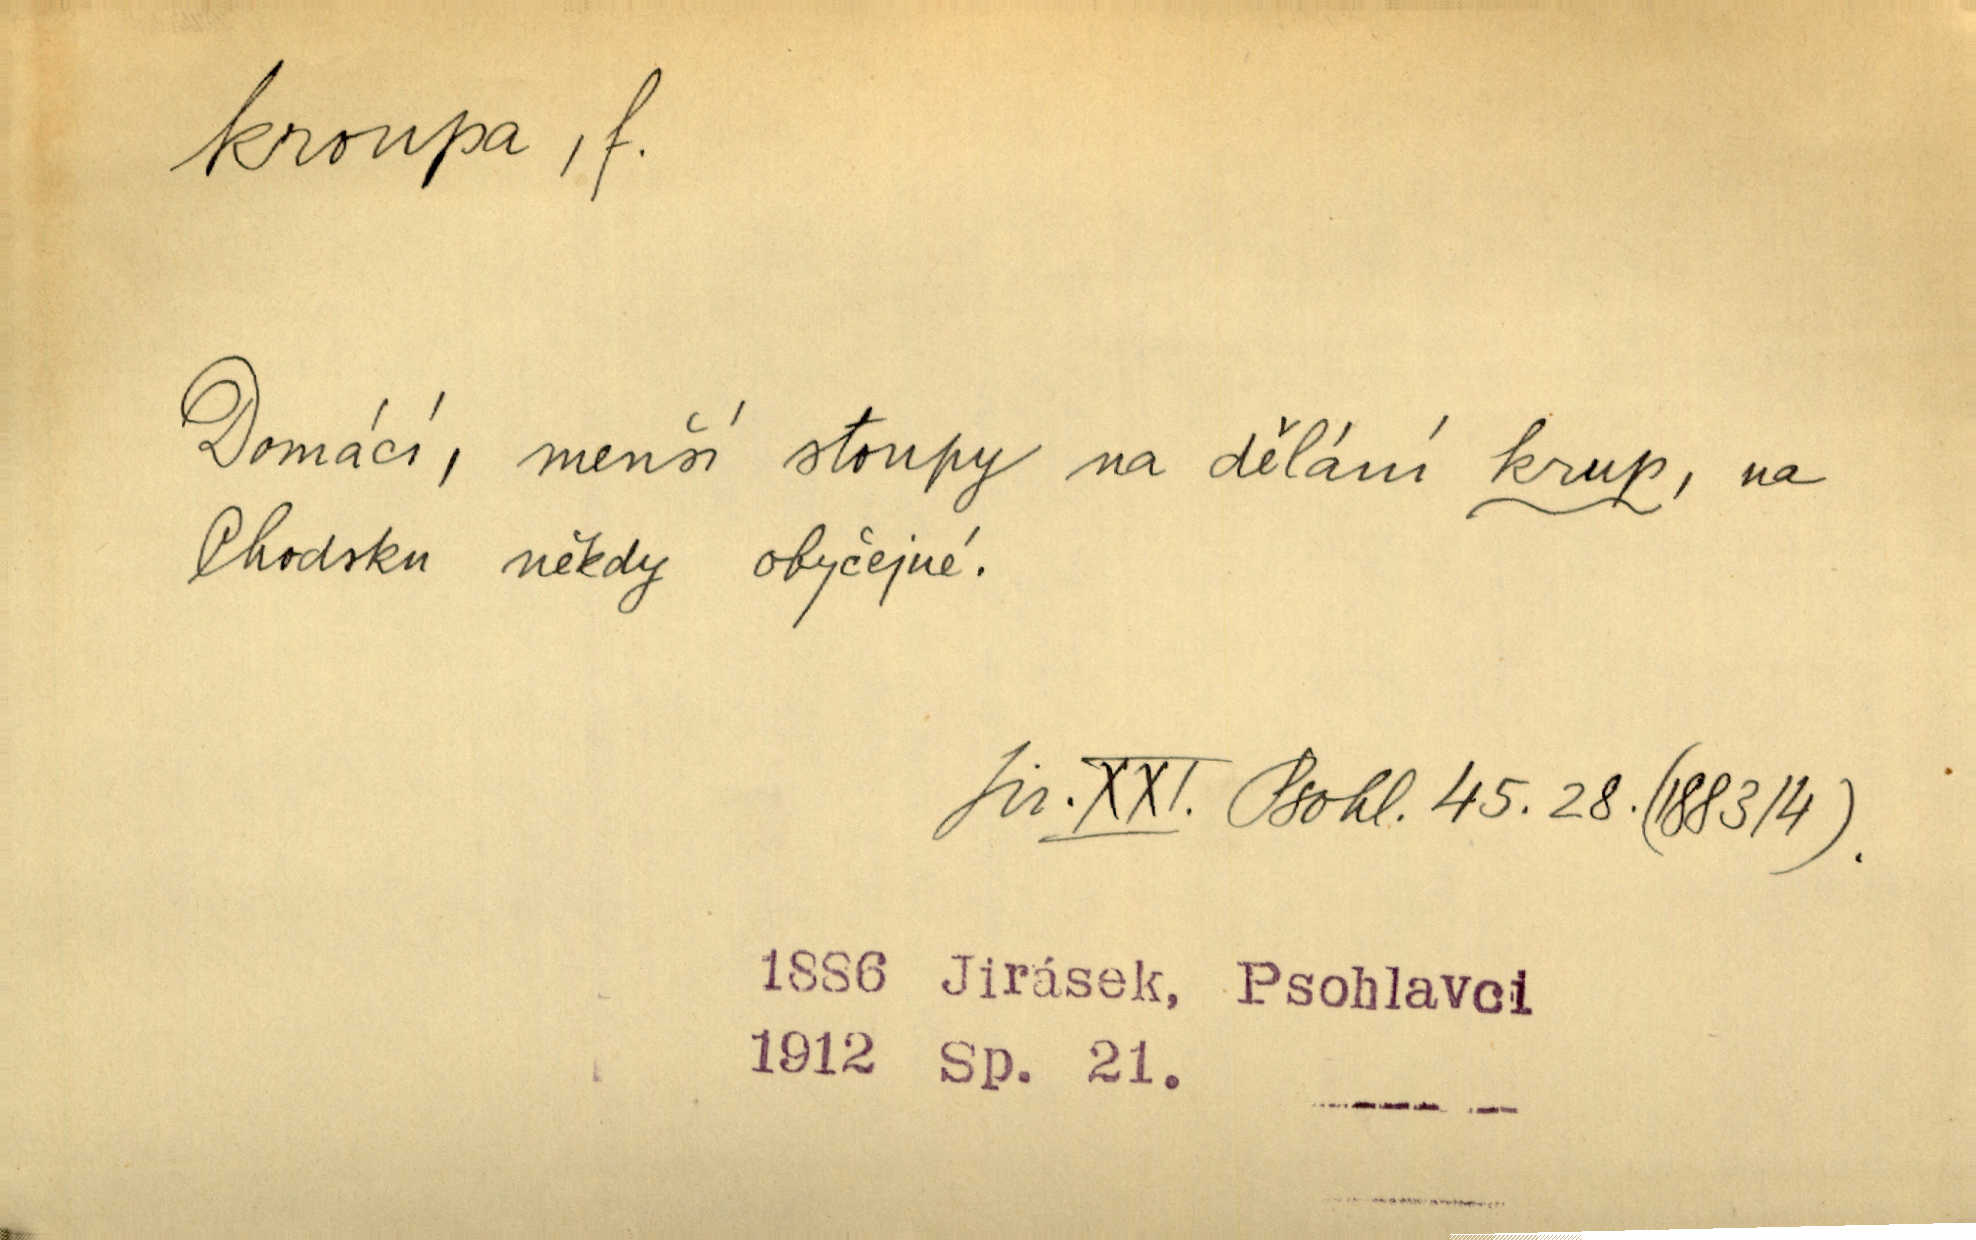 kroupa, f.
Domácí, menší stoupy na dělání krup, na
Chodsku někdy obyčejné.
Jir. XXI. Psohl. 45. 28. (1883/4).
1886 Jirásek, Psohlavci
1912 Sp. 21.